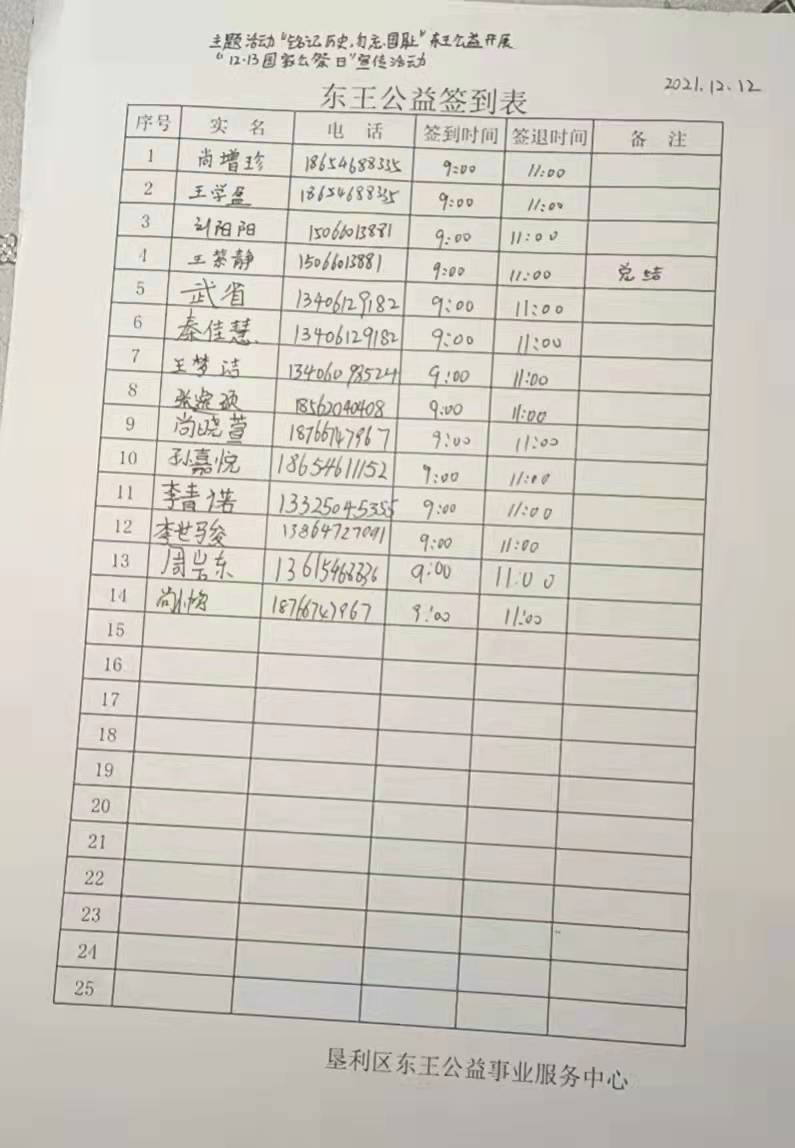 主题活动“铭记历史,勿忘国耻”东王公益开展
“12.13国家公祭日”宣传活动
2021.12.12
东王公益签到表
序号 实名 电话 签到时间 签退时间 备注
1 尚增珍 18654688335 9:00 11:00
2 王学盈 18654688335 9:00 11:00
3 刘阳阳 15066013881 9:00 11:00
4 王紫静 15066013881 9:00 11:00 总结
5 武省 13406129182 9:00 11:00
6 秦佳慧 13406129182 9:00 11:00
7 王梦洁 13406098524 9:00 11:00
8 张 18562040408 9:00 11:00
9 尚晓萱 18766747967 9:00 11:00
10 孙嘉悦 18654611152 9:00 11:00
11 李青诺 13325045355 9:00 11:00
12 李世骏 13864727091 9:00 11:00
13 周岩东 13615468836 9:00 11:00
14 尚 18766747967 9:00 11:00
15
16
17
18
19
20
21
22
23
24
25
垦利区东王公益事业服务中心